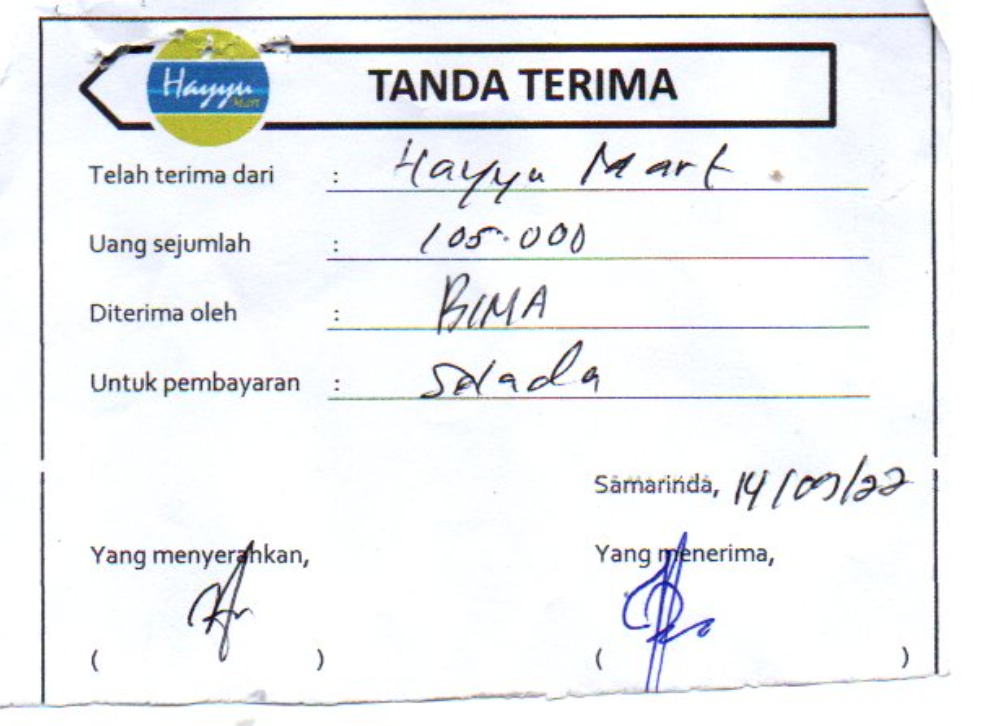 Hayyu Mart
TANDA TERIMA
Telah terima dari : Hayyu Mart
Uang sejumlah : 105.000
Diterima oleh : BIMA
Untuk pembayaran : Selada
Samarinda, 14/09/22
Yang menyerahkan, Yang menerima,
( ) ( )